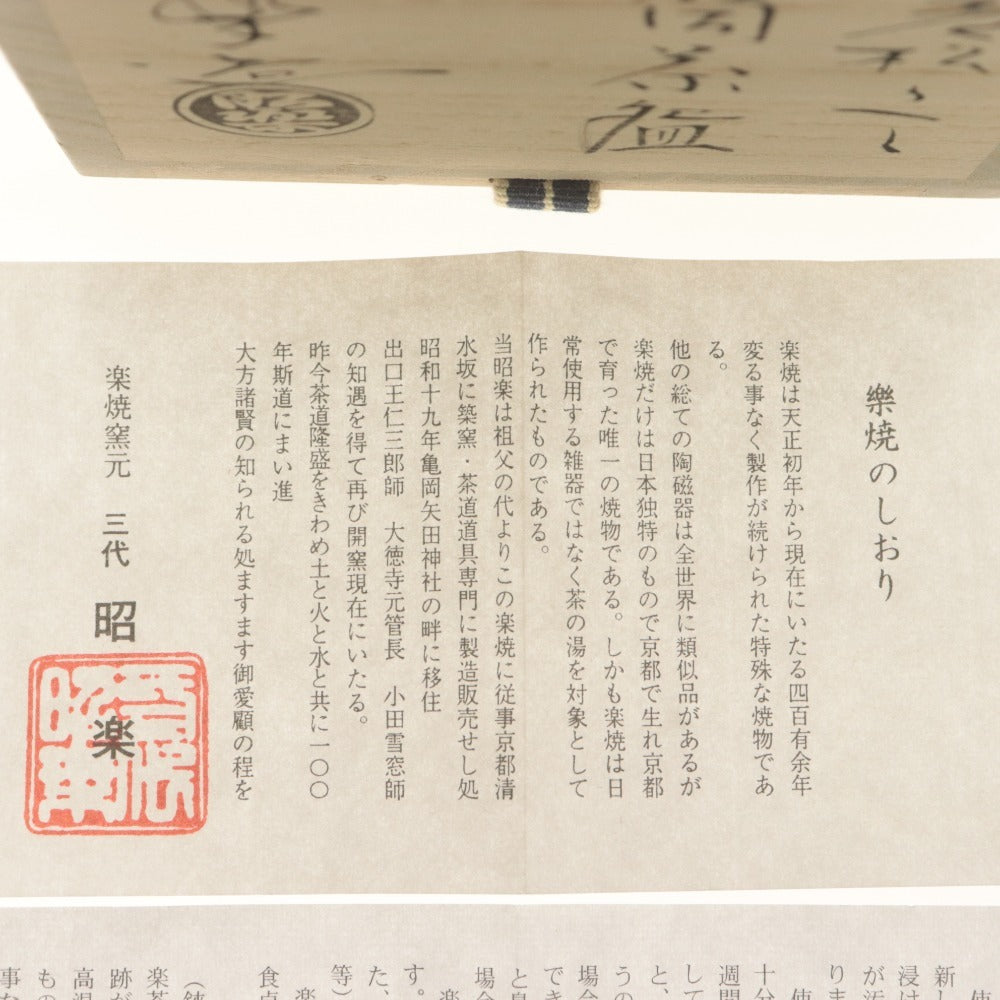 茶盌
樂焼のしおり
楽焼は天正初年から現在にいたる四百有余年
変る事なく製作が続けられた特殊な焼物であ
る。
他の総ての陶磁器は全世界に類似品があるが
楽焼だけは日本独特のもので京都で生れ京都
で育った唯一の焼物である。しかも楽焼は日
常使用する雑器ではなく茶の湯を対象として
作られたものである。
当昭楽は祖父の代よりこの楽焼に従事京都清
水坂に築窯・茶道道具専門に製造販売せし処
昭和十九年亀岡矢田神社の畔に移住
出口王仁三郎師 大徳寺元管長 小田雪窓師
の知遇を得て再び開窯現在にいたる。
昨今茶道隆盛をきわめ土と火と水と共に一〇〇
年斯道にまい進
大方諸賢の知られる処ますます御愛顧の程を
楽焼窯元 三代 昭楽
使
新し
浸は
が汚
りま
使
十分
週間
して
と、
うの
場合
でき
と自
場合
楽
す。
た、
等）
楽
食卓
楽茶
跡が
高温
もの
事な